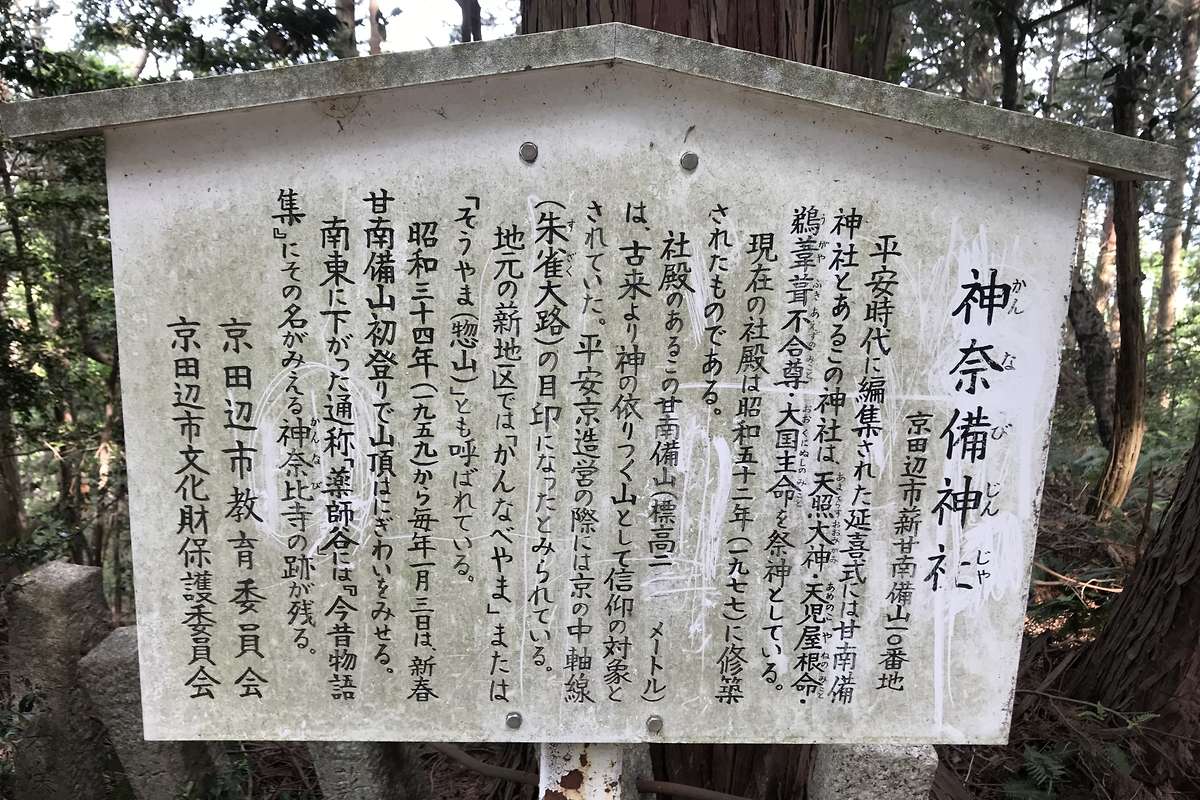 神奈備神社
かんなびじんじゃ
京田辺市新甘南備山一〇番地
平安時代に編集された延喜式には甘南備
神社とあるこの神社は、天照大神・天児屋根命・
あまてらすおおみかみ あめのこやねのみこと
鵜葺葺不合尊・大国主命を祭神としている。
うがやふきあえずのみこと おおくにぬしのみこと
現在の社殿は昭和五十二年(一九七七)に修築
されたものである。
社殿のあるこの甘南備山(標高二 メートル)
は、古来より神の依りつく山として信仰の対象と
されていた。平安京造営の際には京の中軸線
(朱雀大路)の目印になったとみられている。
すざく
地元の新地区では「かんなべやま」または
「そうやま(惣山)」とも呼ばれている。
昭和三十四年(一九五九)から毎年一月三日は、新春
甘南備山初登りで山頂はにぎわいをみせる。
南東に下がった通称「薬師谷」には『今昔物語
集』にその名がみえる神奈比寺の跡が残る。
かんなび
京田辺市教育委員会
京田辺市文化財保護委員会